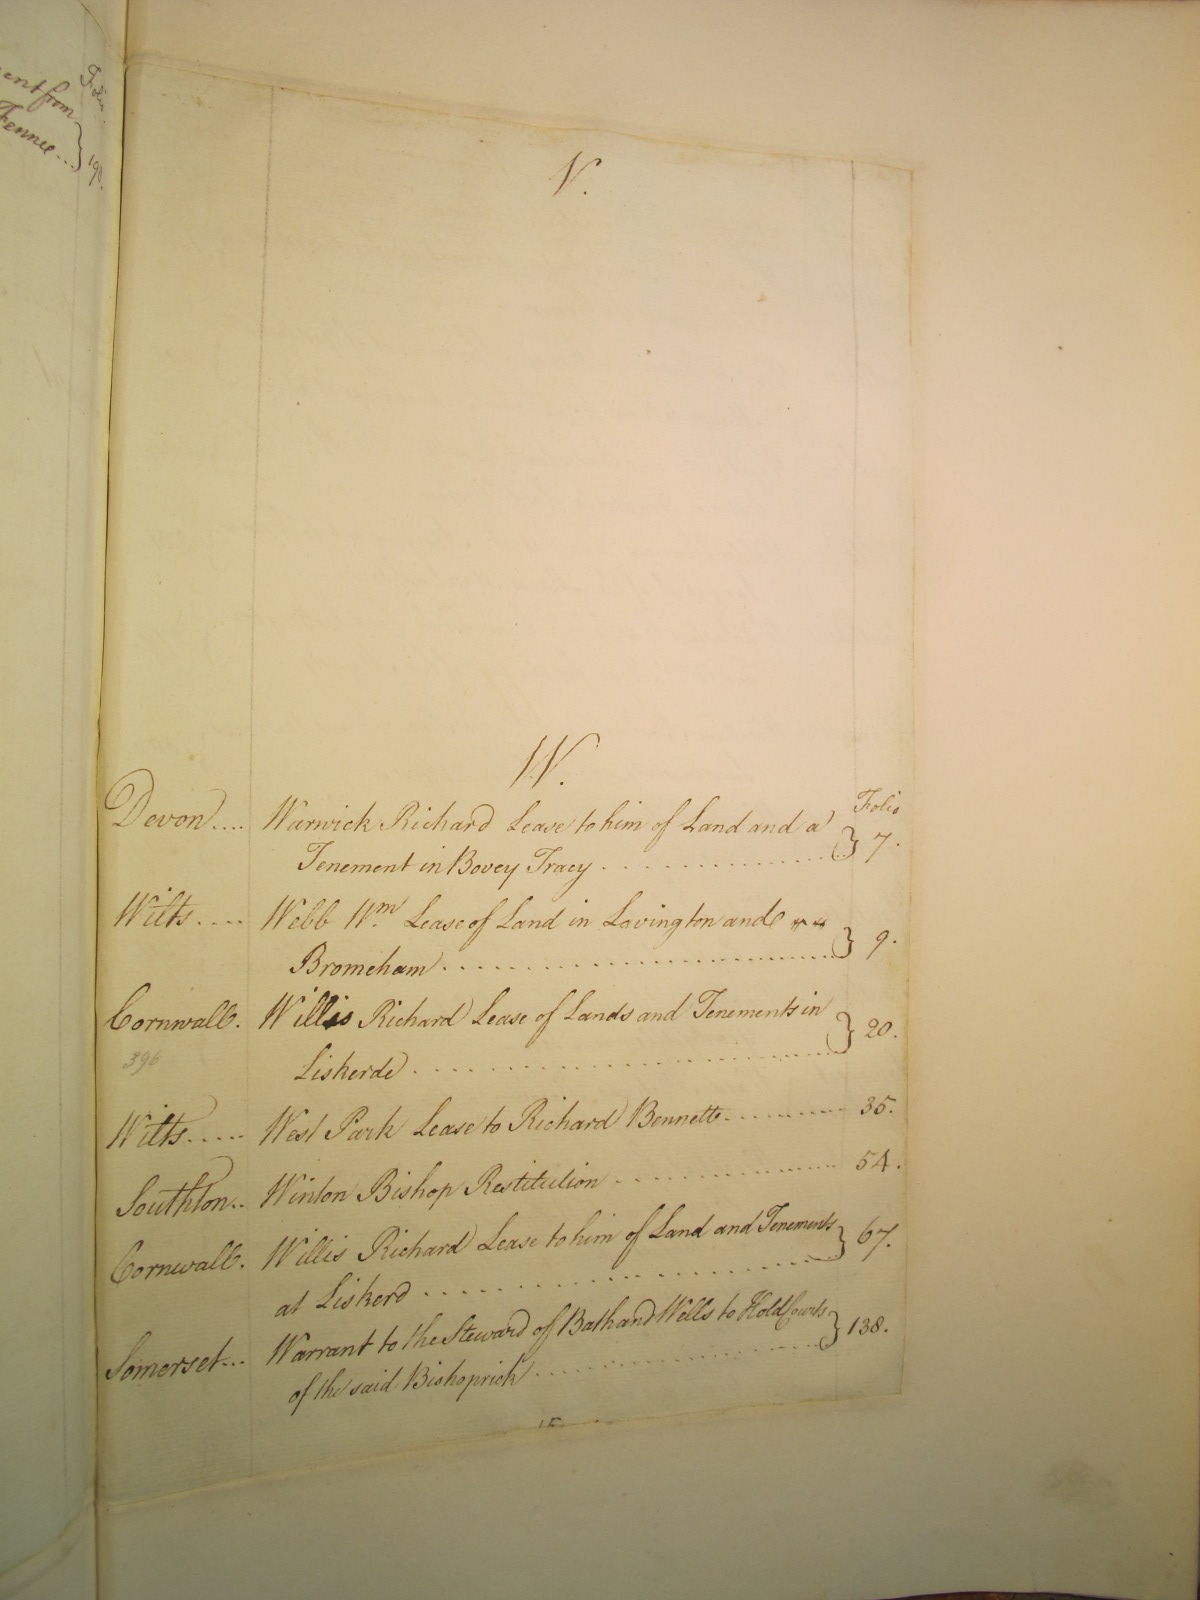 Folio.
ent from
Tennee... } 198.
V.
W.
Folio
Devon.... Warwick Richard Lease to him of Land and a
Tenement in Bovey Tracy ............... } 7.
Wilts.... Webb Wm. Lease of Land in Lavington and
Bromeham ............... } 9.
Cornwall. Willis Richard Lease of Lands and Tenements in
396 Liskerde ............... } 20.
Wilts..... West Park Lease to Richard Bennett.......... 35.
Southton.. Winton Bishop Restitution ............... 54.
Cornwall. Willis Richard Lease to him of Land and Tenements
at Liskerd ............... } 67.
Somerset... Warrant to the Steward of Bath and Wells to Hold Courts
of the said Bishoprick ............... } 138.